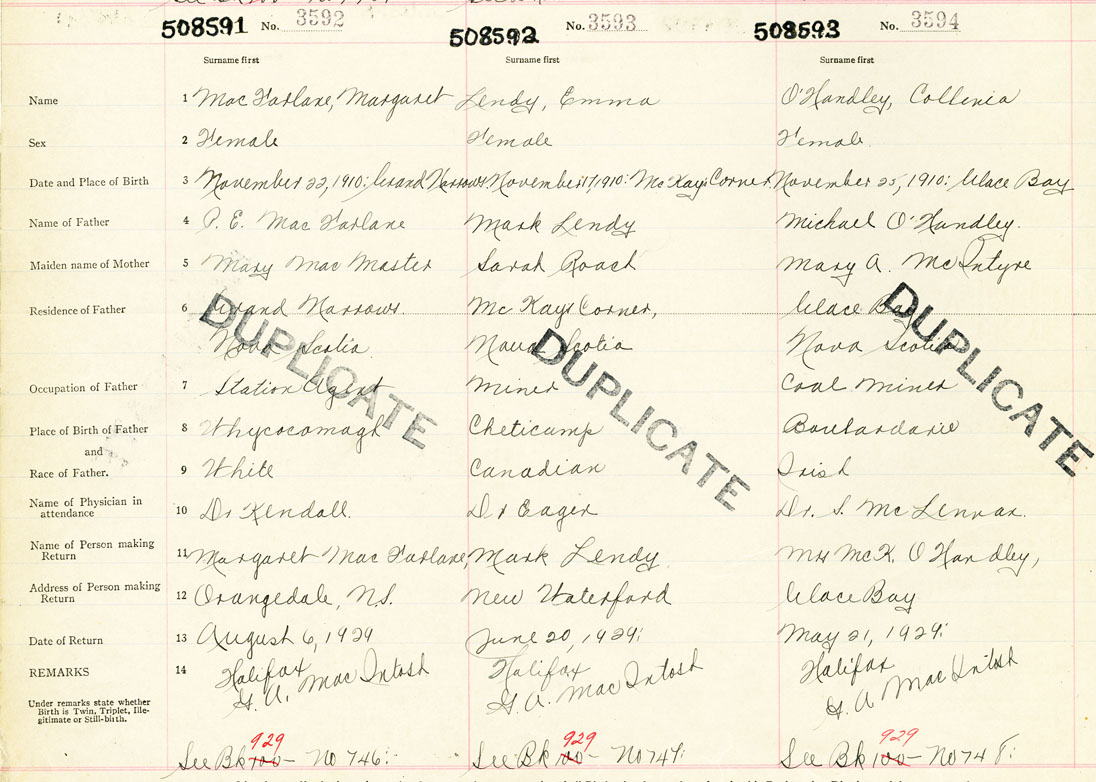 508591 No. 3592 508592 No. 3593 508593 No. 3594
Surname first Surname first Surname first
Name 1 Mac Farlane, Margaret Lendy, Emma O'Handley, Collenia
Sex 2 Female Female Female.
Date and Place of Birth 3 November 22, 1910: Grand Narrows November 17, 1910: McKays Corner. November 25, 1910: Glace Bay
Name of Father 4 P. E. Mac Farlane Mark Lendy Michael O'Handley.
Maiden name of Mother 5 Mary Mac Master Sarah Roach Mary A. McIntyre
Residence of Father 6 Grand Narrows Mc Kays Corner, Glace Bay
Nova Scotia. Nova Scotia Nova Scotia
DUPLICATE DUPLICATE DUPLICATE
Occupation of Father 7 Station Agent Miner Coal Miner
Place of Birth of Father 8 Whycocomagh Cheticamp Boulardarie
and
Race of Father. 9 White Canadian Irish
Name of Physician in
attendance 10 Dr Kendall. Dr Eager Dr. S. McLennan.
Name of Person making
Return 11 Margaret Mac Farlane, Mark Lendy. Mrs McK. O'Handley,
Address of Person making
Return 12 Orangedale, N.S. New Waterford Glace Bay
Date of Return 13 August 6, 1929 June 20, 1929: May 21, 1929:
REMARKS 14 Halifax Halifax Halifax
G. A. Mac Intosh G. A. Mac Intosh G. A. Mac Intosh
Under remarks state whether
Birth is Twin, Triplet, Ille-
gitimate or Still-birth.
929 929 929
See Bk 100- No 746: See Bk 100- No 747: See Bk 100- No 748: